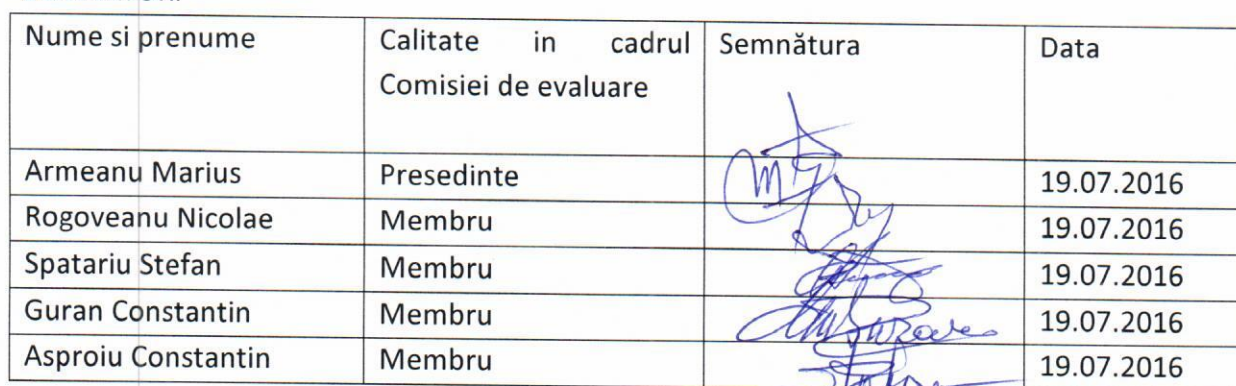 Nume si prenume Calitate in cadrul Comisiei de evaluare Semnătura Data
Armeanu Marius Presedinte 19.07.2016
Rogoveanu Nicolae Membru 19.07.2016
Spatariu Stefan Membru 19.07.2016
Guran Constantin Membru 19.07.2016
Asproiu Constantin Membru 19.07.2016